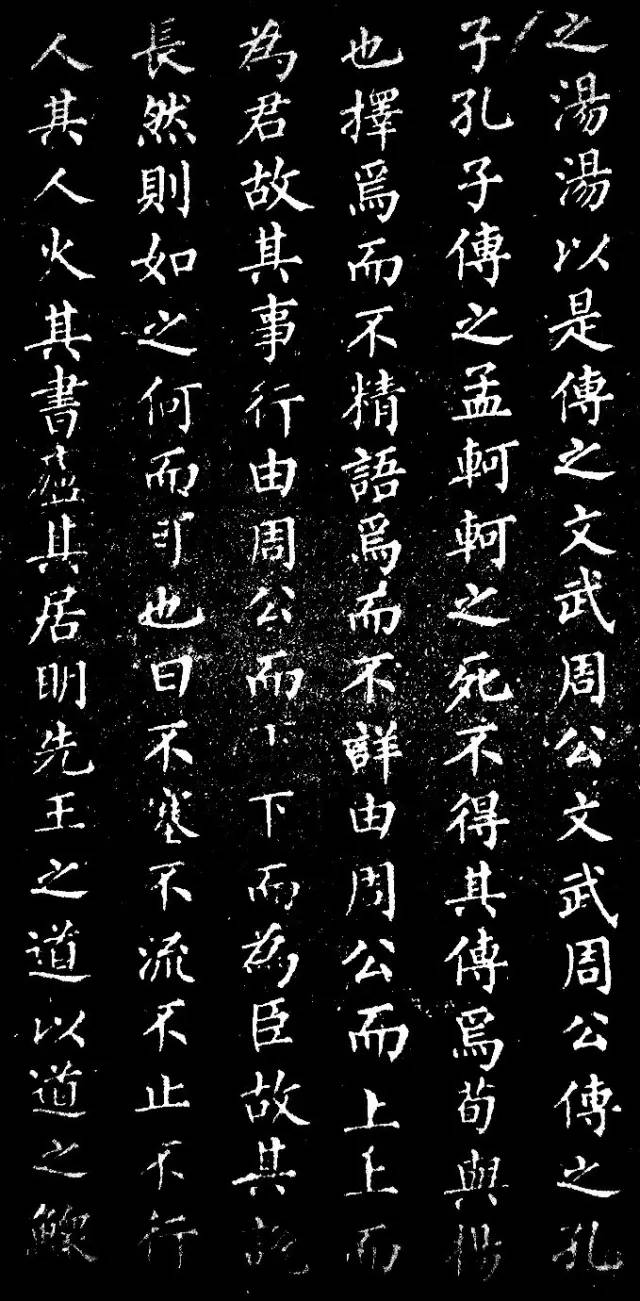 之湯湯以是傳之文武周公文武周公傳之孔
子孔子傳之孟軻軻之死不得其傳焉荀與揚
也擇焉而不精語焉而不詳由周公而上上而
為君故其事行由周公而下下而為臣故其說
長然則如之何而可也曰不塞不流不止不行
人其人火其書廬其居明先王之道以道之鰥